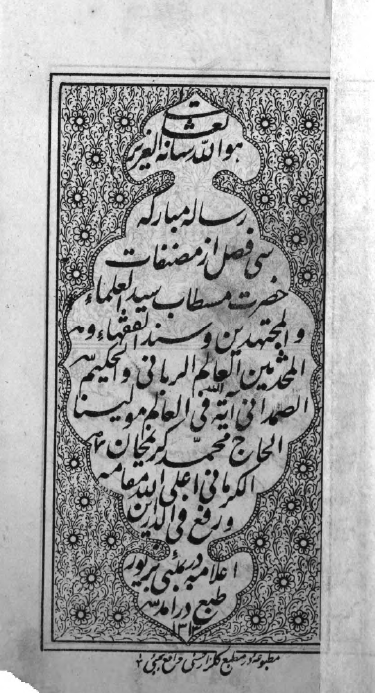 هو الله تعالی شانه العزیز
رساله مبارکه
سی فصل از مصنفات
حضرت مستطاب سید العلماء
والمجتهدین وسند الفقهاء و
المحدثین العالم الربانی والحکیم
الصمدانی آیة الله فی العالم مولینا
الحاج محمد کریمخان
الکرمانی اعلی الله مقامه
ورفع فی الدارین
اعلامه در بمبئی بزیور
طبع درآمد
۱۳۱۳
مطبوعه در مطبع گلزار حسنی